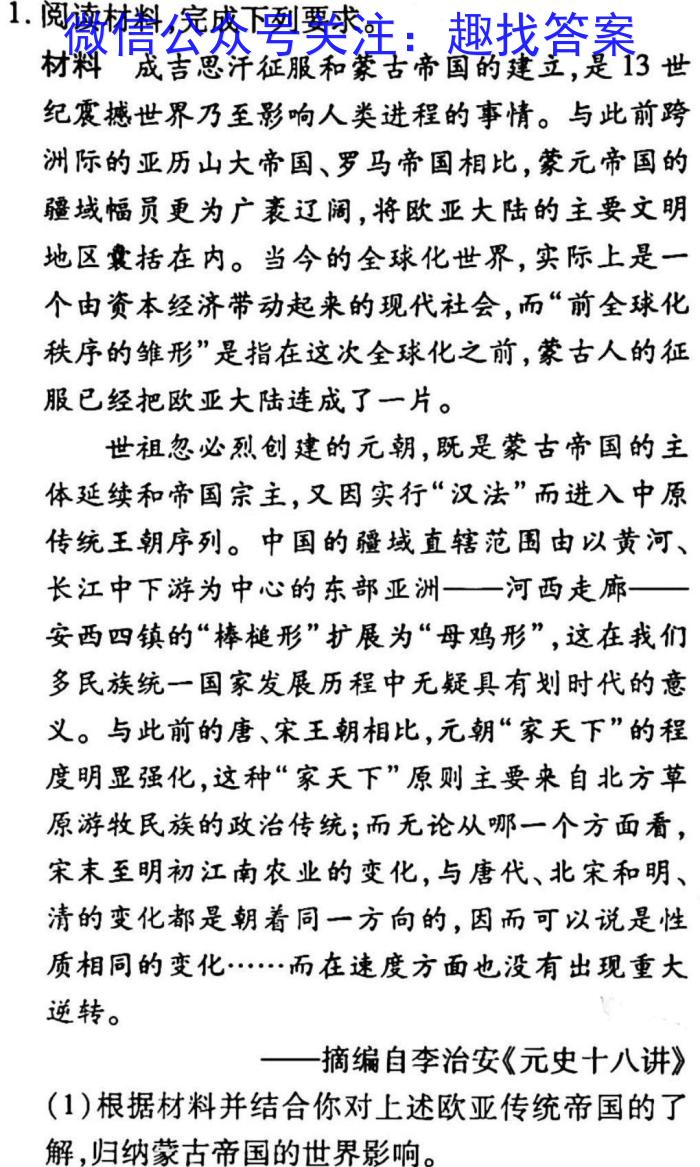 1. 阅读材料,完成下列要求。
微信公众号关注：趣找答案
材料 成吉思汗征服和蒙古帝国的建立,是 13 世
纪震撼世界乃至影响人类进程的事情。与此前跨
洲际的亚历山大帝国、罗马帝国相比,蒙元帝国的
疆域幅员更为广袤辽阔,将欧亚大陆的主要文明
地区囊括在内。当今的全球化世界,实际上是一
个由资本经济带动起来的现代社会,而“前全球化
秩序的雏形”是指在这次全球化之前,蒙古人的征
服已经把欧亚大陆连成了一片。
世祖忽必烈创建的元朝,既是蒙古帝国的主
体延续和帝国宗主,又因实行“汉法”而进入中原
传统王朝序列。中国的疆域直辖范围由以黄河、
长江中下游为中心的东部亚洲——河西走廊——
安西四镇的“棒槌形”扩展为“母鸡形”,这在我们
多民族统一国家发展历程中无疑具有划时代的意
义。与此前的唐、宋王朝相比,元朝“家天下”的程
度明显强化,这种“家天下”原则主要来自北方草
原游牧民族的政治传统;而无论从哪一个方面看,
宋末至明初江南农业的变化,与唐代、北宋和明、
清的变化都是朝着同一方向的,因而可以说是性
质相同的变化……而在速度方面也没有出现重大
逆转。
——摘编自李治安《元史十八讲》
(1)根据材料并结合你对上述欧亚传统帝国的了
解,归纳蒙古帝国的世界影响。